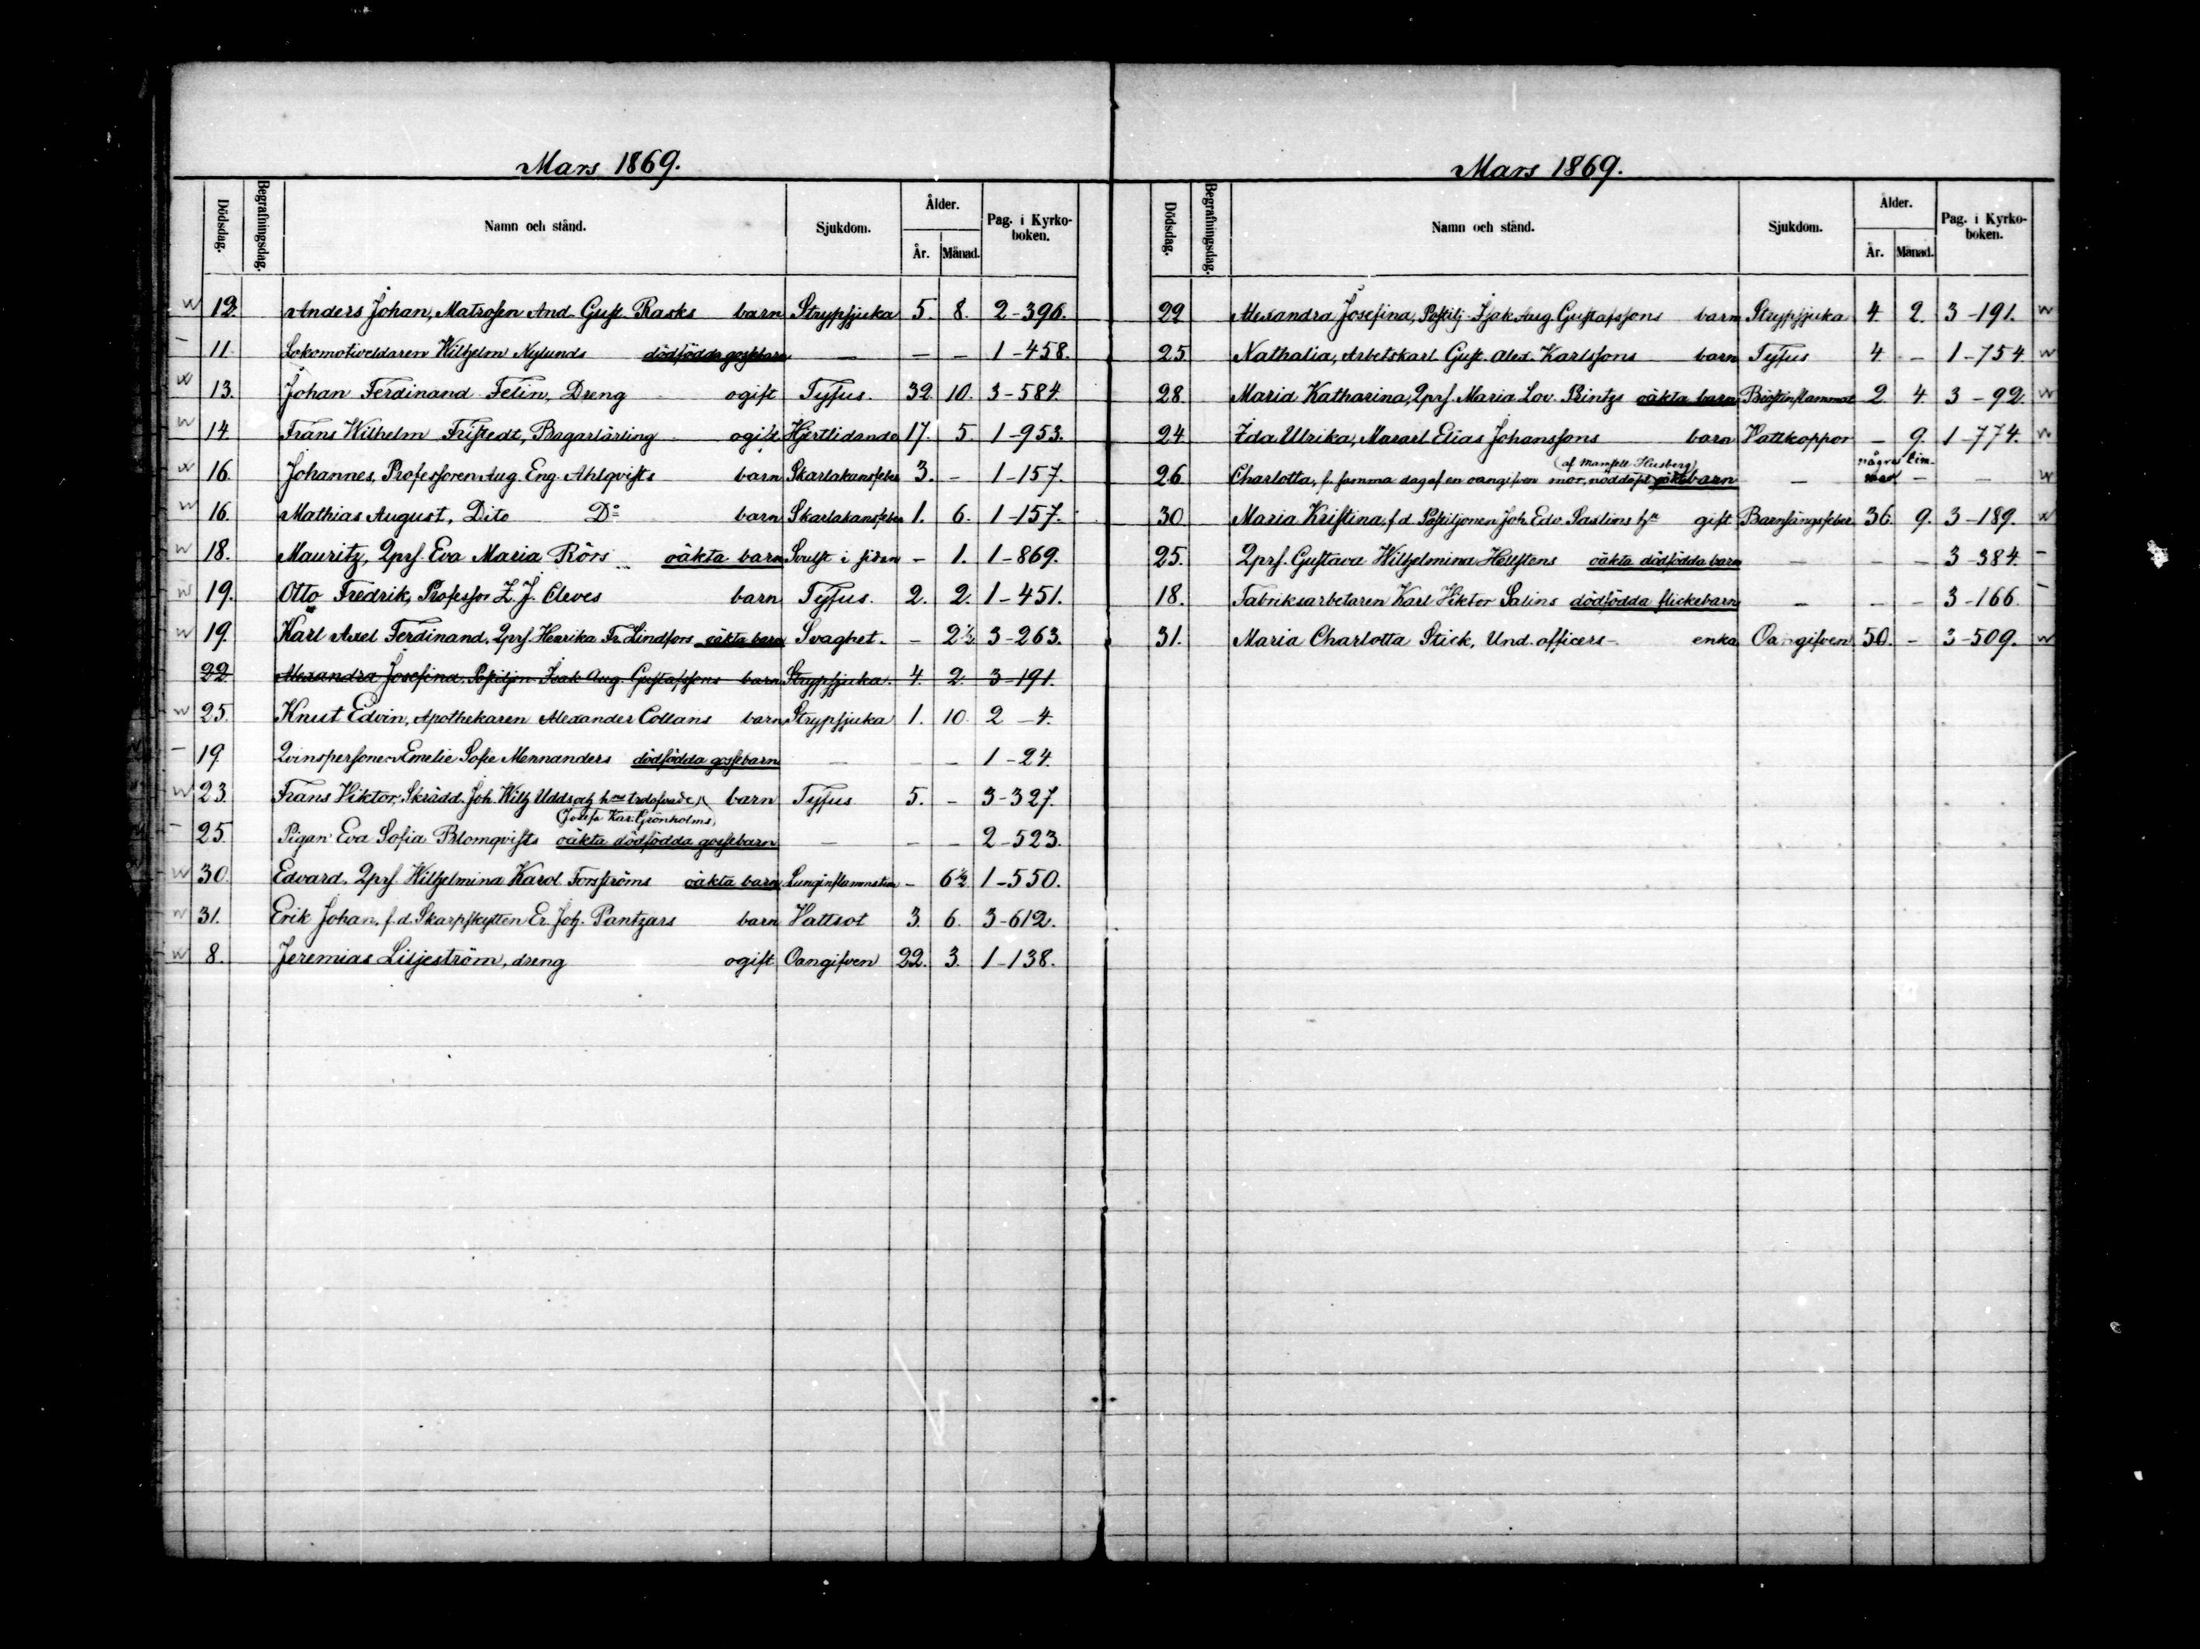 Mars 1869.
Dödsdag. Begrafningsdag. Namn och stånd. Sjukdom. Ålder. År. Månad. Pag. i Kyrkoboken.
w 12. Anders Johan, Matrosen And. Gust. Rasks barn Strypsjuka 5. 8. 2-396.
– 11. Lokomotiveldaren Wilhelm Nylunds dödfödda gossebarn — — — 1-458.
w 13. Johan Ferdinand Felin, Dreng ogift Tyfus. 32. 10. 3-584.
w 14. Frans Wilhelm Fristedt, Bagarlärling ogift Hjertlidande 17. 5. 1-953.
w 16. Johannes, Professoren Aug. Eng. Ahlqvists barn Skarlakansfeber 3. - 1-157.
w 16. Mathias August, Dito Do barn Skarlakansfeber 1. 6. 1-157.
w 18. Mauritz, Qprs. Eva Maria Rörs oäkta barn Svulst i sidan - 1. 1-869.
w 19. Otto Fredrik, Professor Z. J. Cleves barn Tyfus. 2. 2. 1-451.
w 19. Karl Axel Ferdinand, Qprs. Henrika Fr. Lindfors oäkta barn Svaghet. - 2½ 3-263.
22. Alexandra Josefina, Postiljon Isak Aug. Gustafssons barn Strypsjuka. 4. 2. 3-191.
w 25. Knut Edvin, Apothekaren Alexander Collans barn Strypsjuka 1. 10. 2-4.
– 19. Qvinspersonen Emelie Sofie Mennanders dödfödda gossebarn — — — 1-24.
w 23. Frans Viktor, Skrädd. Joh. Wilh. Udds och hans trolofvade barn Tyfus 5. - 3-327.
(Josefa Kar. Grönholms)
– 25. Pigan Eva Sofia Blomqvists oäkta dödfödda gossebarn — — — 2-523.
w 30. Edvard, Qprs. Wilhelmina Karol. Forsströms oäkta barn Lunginflammation - 6½ 1-550.
w 31. Erik Johan, f.d. Skarpskytten Er. Joh. Pantzars barn Vattsot 3. 6. 3-612.
w 8. Jeremias Liljeström, dreng ogift Oangifven 22. 3. 1-138.
Mars 1869.
Dödsdag. Begrafningsdag. Namn och stånd. Sjukdom. Ålder. År. Månad. Pag. i Kyrkoboken.
22 Alexandra Josefina, Postilj. Isak Aug. Gustafssons barn Strypsjuka 4. 2. 3-191. w
25 Nathalia, Arbetskarl Gust. Alex. Karlssons barn Tyfus 4. - 1-754 w
28. Maria Katharina, Qprs. Maria Lov. Printzs oäkta barn Bröstinflammat. 2 4. 3-92. w
24 Ida Ulrika, Elias Johanssons barn Vattkoppor - 9. 1-774. w
(af Mamsell Husberg) några tim-
26 Charlotta, f. samma dag af en oangifven mor, nöddöpt oäkta barn — mar - - w
30 Maria Kristina, f.d. Postiljonen Joh. Edv. Saslins hu gift Barnsängsfeber 36. 9. 3-189. w
25. Qprs. Gustava Wilhelmina Hellstens oäkta dödfödda barn — — — 3-384. –
18. Fabriksarbetaren Karl Viktor Salins dödfödda flickebarn — — — 3-166. –
31. Maria Charlotta Stick, Und. officers- enka Oangifven 50. - 3-509. w